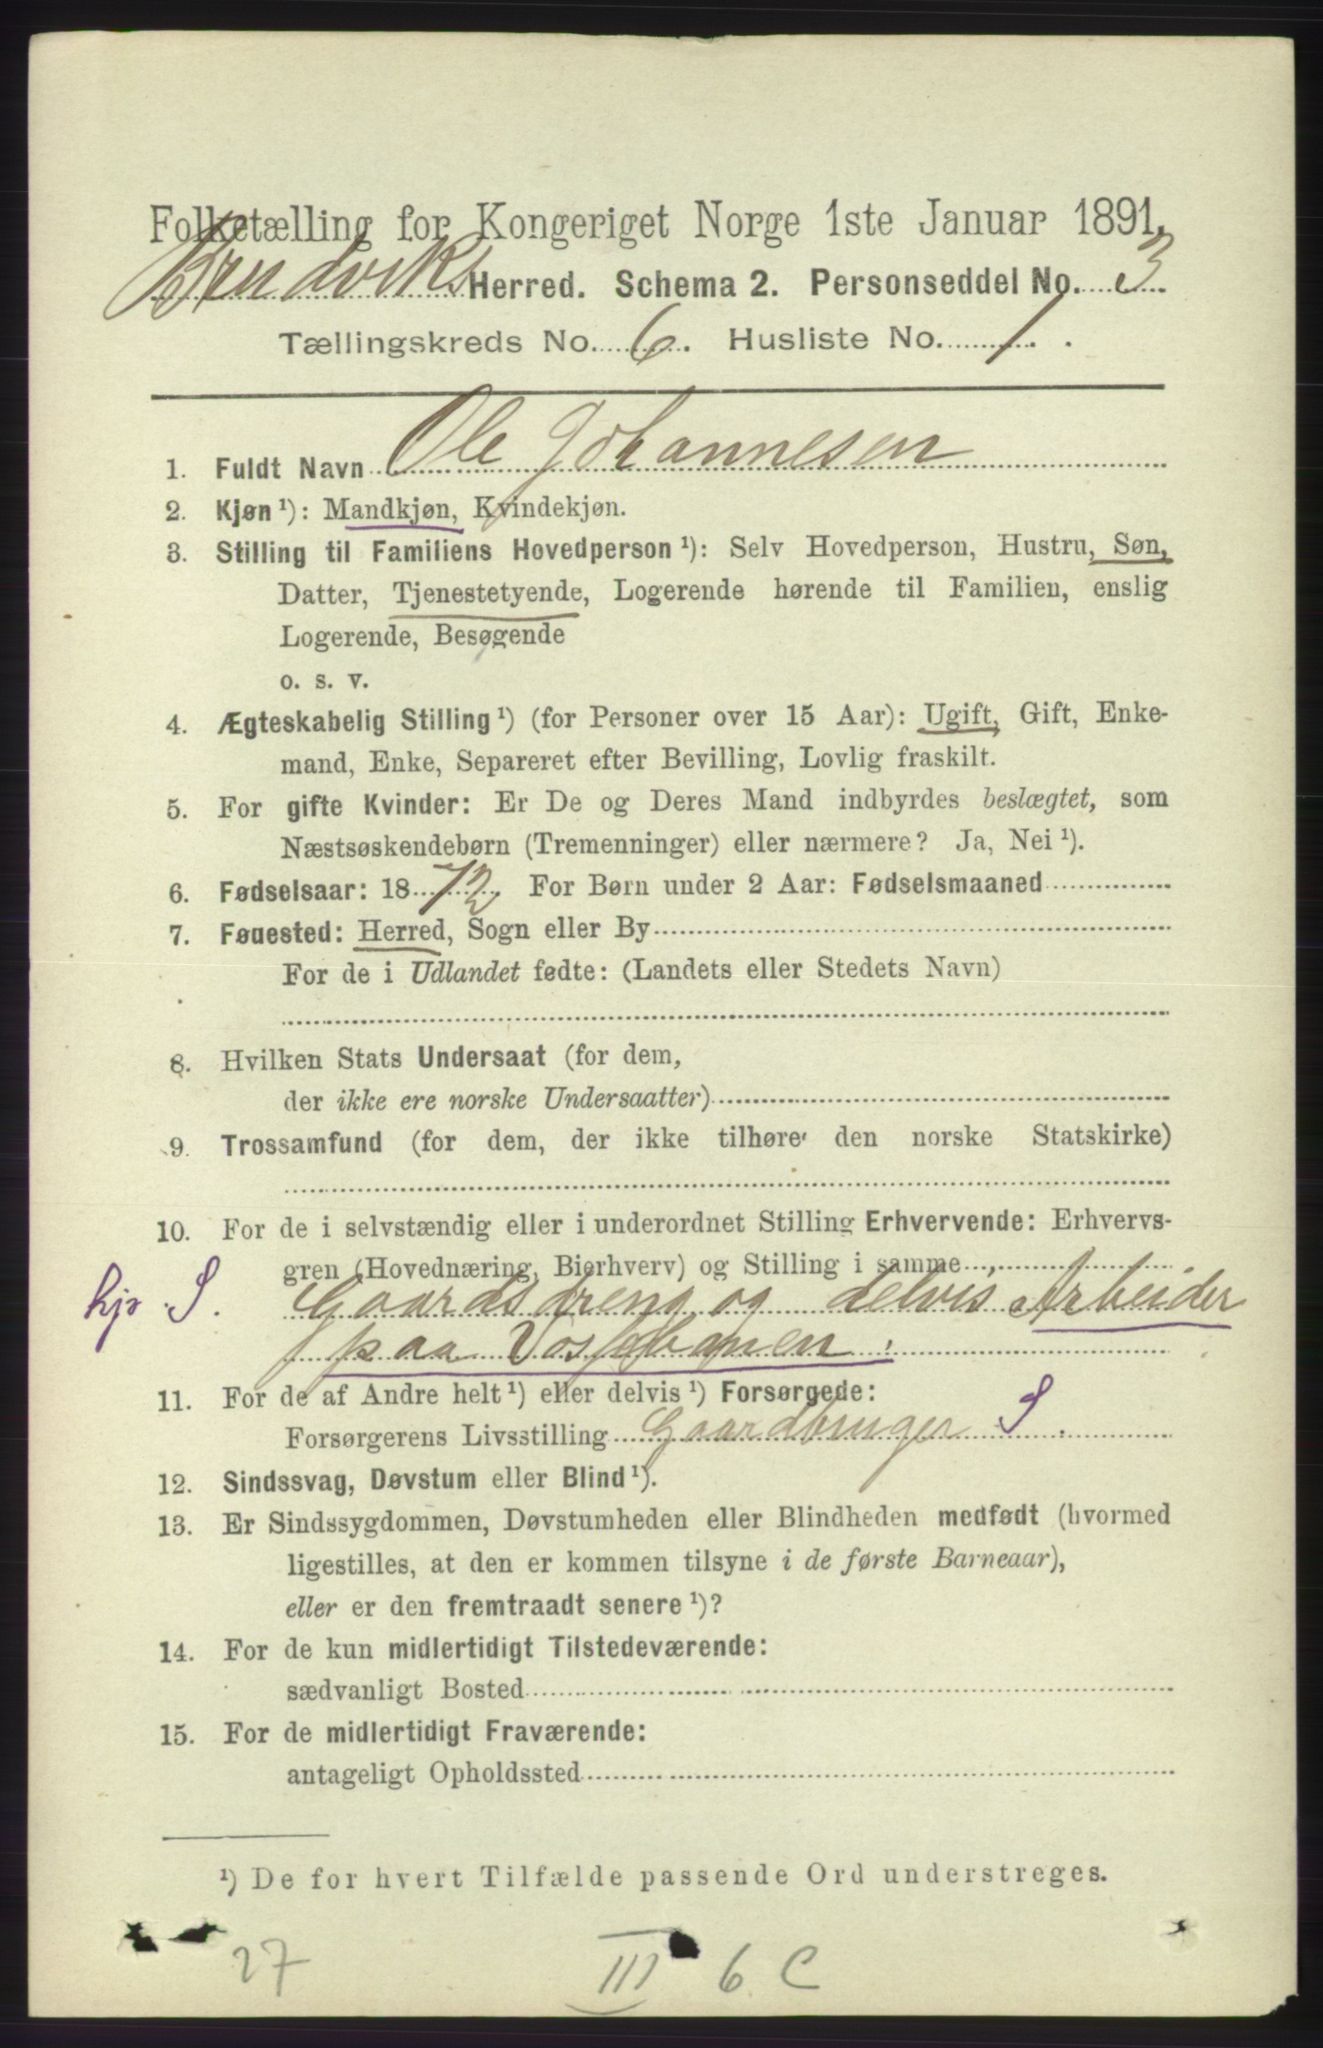 Folketælling for Kongeriget Norge 1ste Januar 1891.
Brudviks Herred. Schema 2. Personseddel No. 3
Tællingskreds No. 6. Husliste No. 1.
1. Fuldt Navn Ole Johannesen
2. Kjøn ¹): Mandkjøn, Kvindekjøn.
3. Stilling til Familiens Hovedperson ¹): Selv Hovedperson, Hustru, Søn,
Datter, Tjenestetyende, Logerende hørende til Familien, enslig
Logerende, Besøgende
o. s. v.
4. Ægteskabelig Stilling ¹) (for Personer over 15 Aar): Ugift, Gift, Enke-
mand, Enke, Separeret efter Bevilling, Lovlig fraskilt.
5. For gifte Kvinder: Er De og Deres Mand indbyrdes beslægtet, som
Næstsøskendebørn (Tremenninger) eller nærmere? Ja, Nei ¹).
6. Fødselsaar: 1872. For Børn under 2 Aar: Fødselsmaaned
7. Føuested: Herred, Sogn eller By
For de i Udlandet fødte: (Landets eller Stedets Navn)
8. Hvilken Stats Undersaat (for dem,
der ikke ere norske Undersaatter)
9. Trossamfund (for dem, der ikke tilhøre den norske Statskirke)
10. For de i selvstændig eller i underordnet Stilling Erhvervende: Erhvervs-
gren (Hovednæring, Bierhverv) og Stilling i samme
hjs S. Gaardsdreng og delvis Arbeider
paa Vossebanen.
11. For de af Andre helt ¹) eller delvis ¹) Forsørgede:
Forsørgerens Livsstilling Gaardbruger S.
12. Sindssvag, Døvstum eller Blind ¹).
13. Er Sindssygdommen, Døvstumheden eller Blindheden medfødt (hvormed
ligestilles, at den er kommen tilsyne i de første Barneaar),
eller er den fremtraadt senere ¹)?
14. For de kun midlertidigt Tilstedeværende:
sædvanligt Bosted
15. For de midlertidigt Fraværende:
antageligt Opholdssted
¹) De for hvert Tilfælde passende Ord understreges.
27 III 6 C